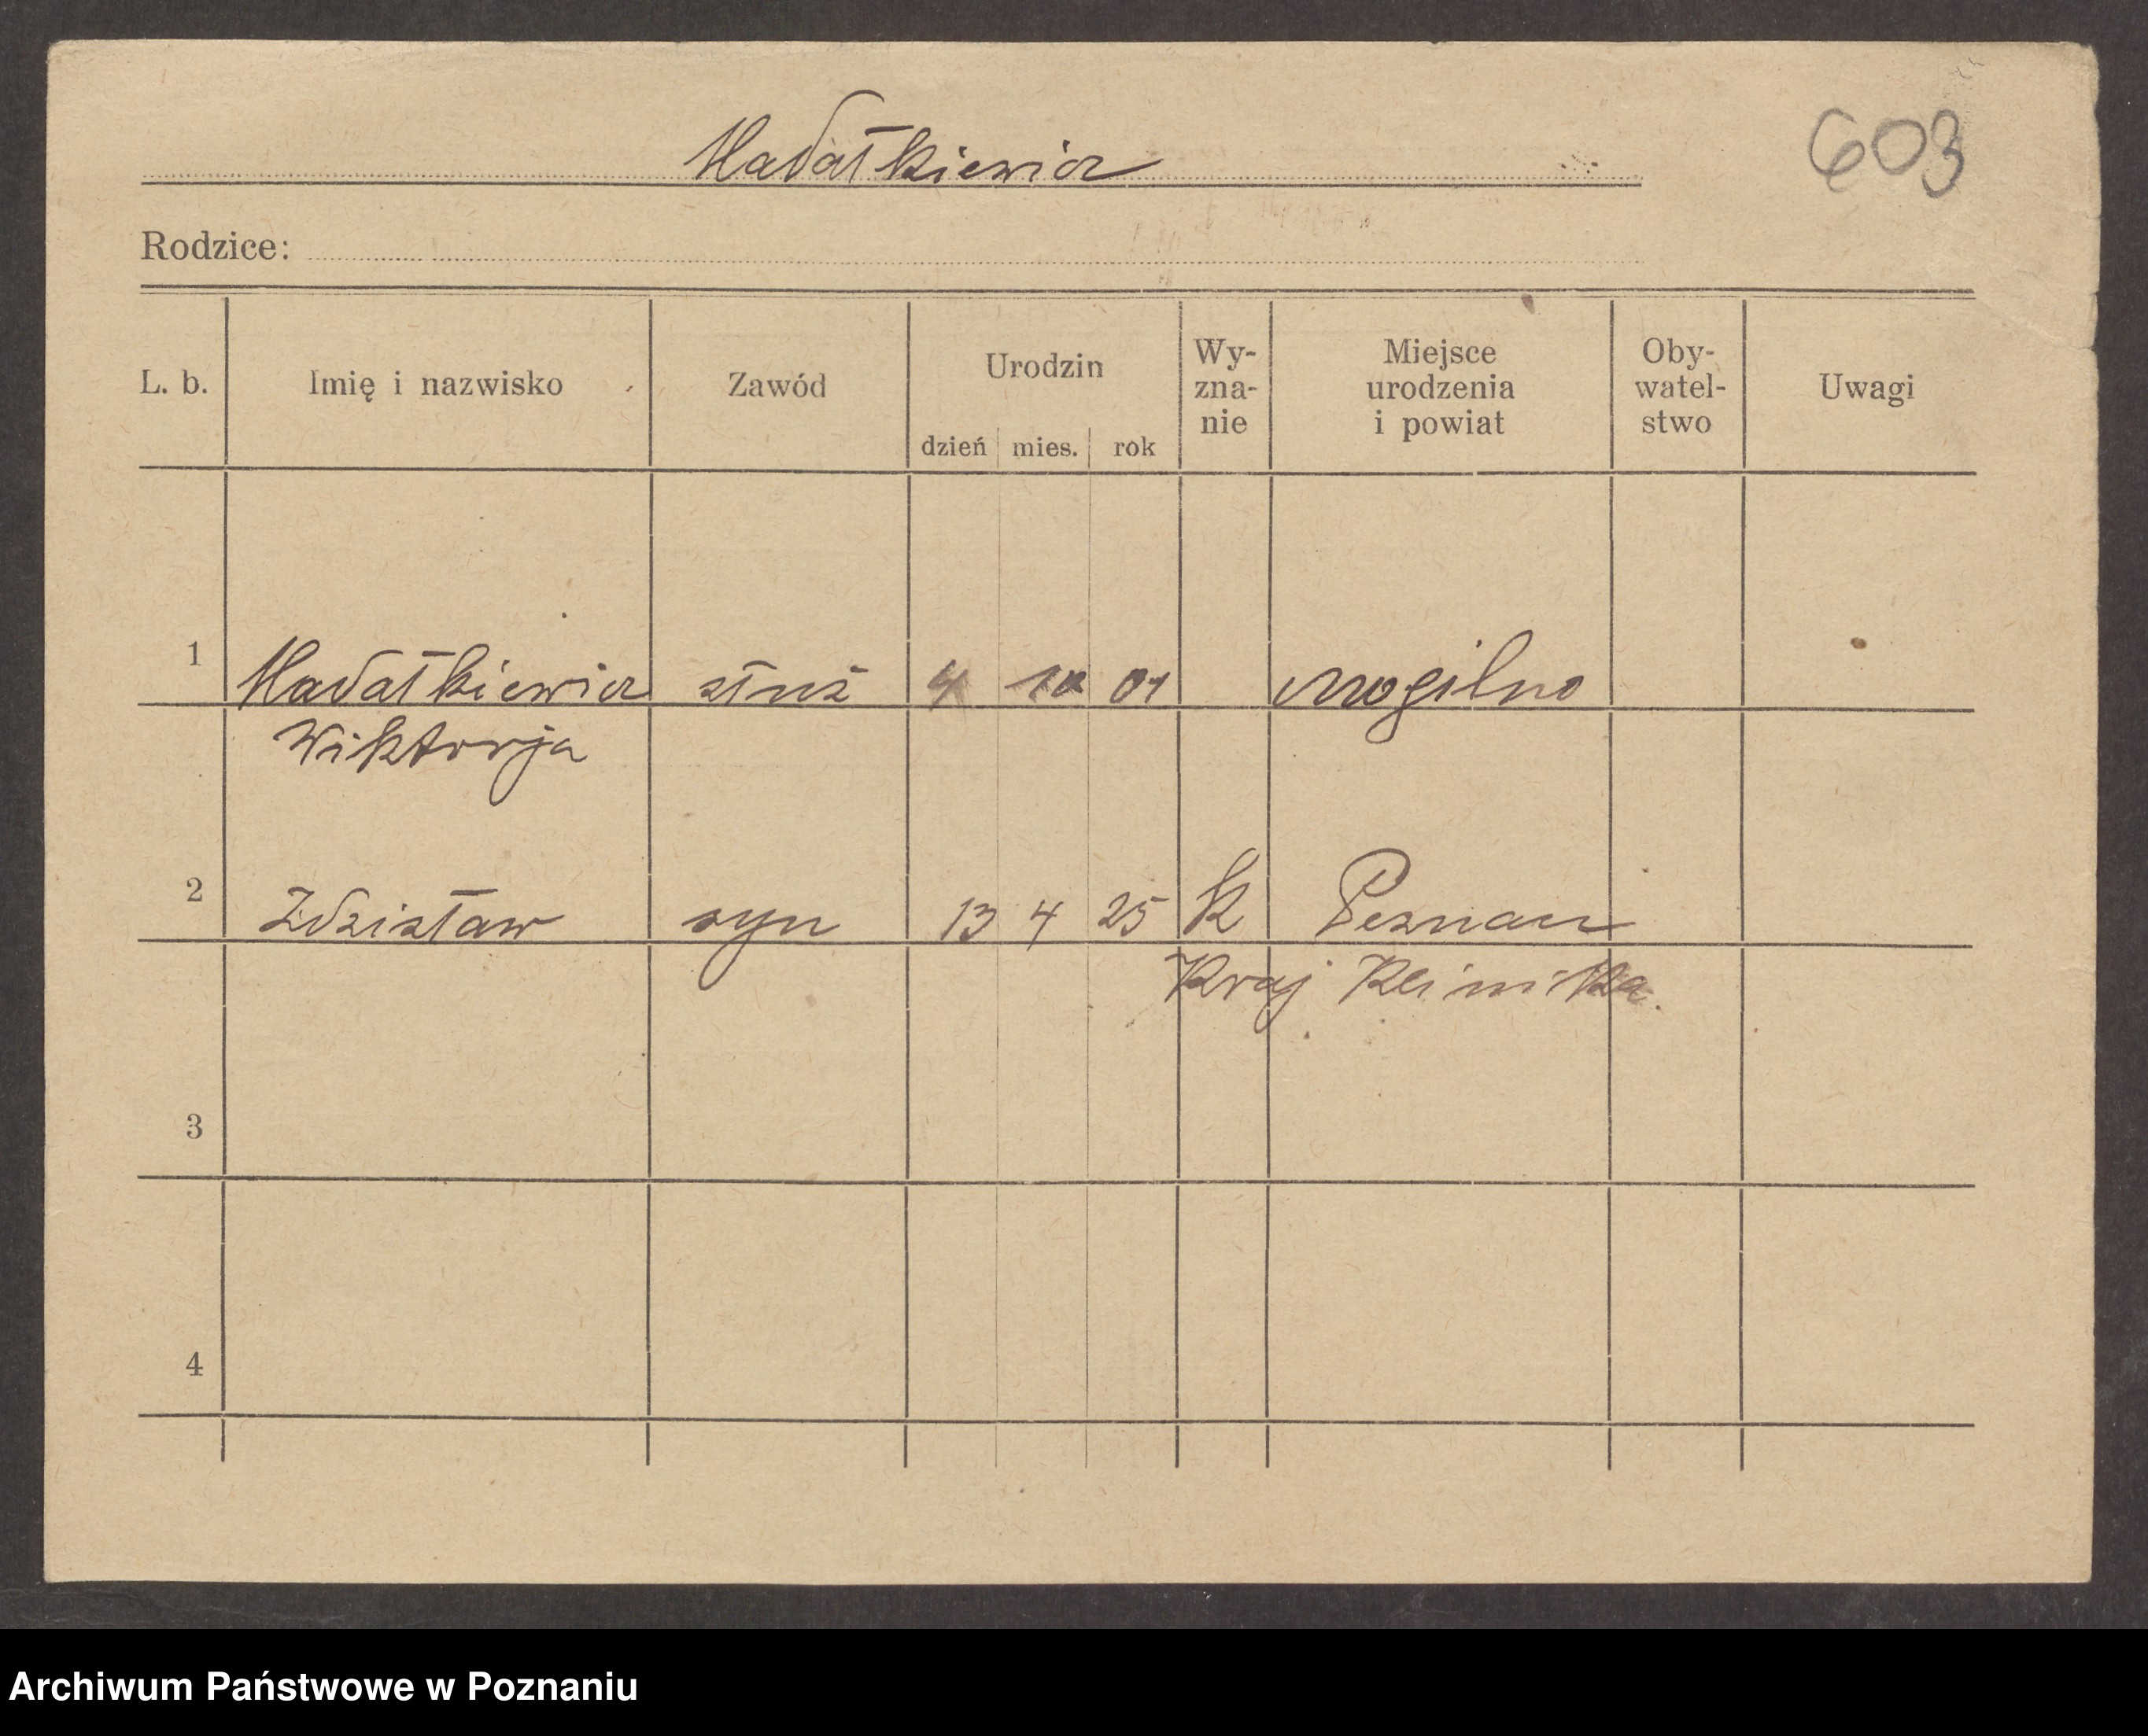 603
Hadałkiewicz
Rodzice:
L. b. Imię i nazwisko Zawód Urodzin dzień mies. rok Wy-zna-nie Miejsce urodzenia i powiat Oby-watel-stwo Uwagi
1 Hadałkiewicz służ 4 10 01 Mogilno
Wiktorja
2 Zdzisław syn 13 4 25 K Poznań
Kraj Klinika.
3
4
Archiwum Państwowe w Poznaniu